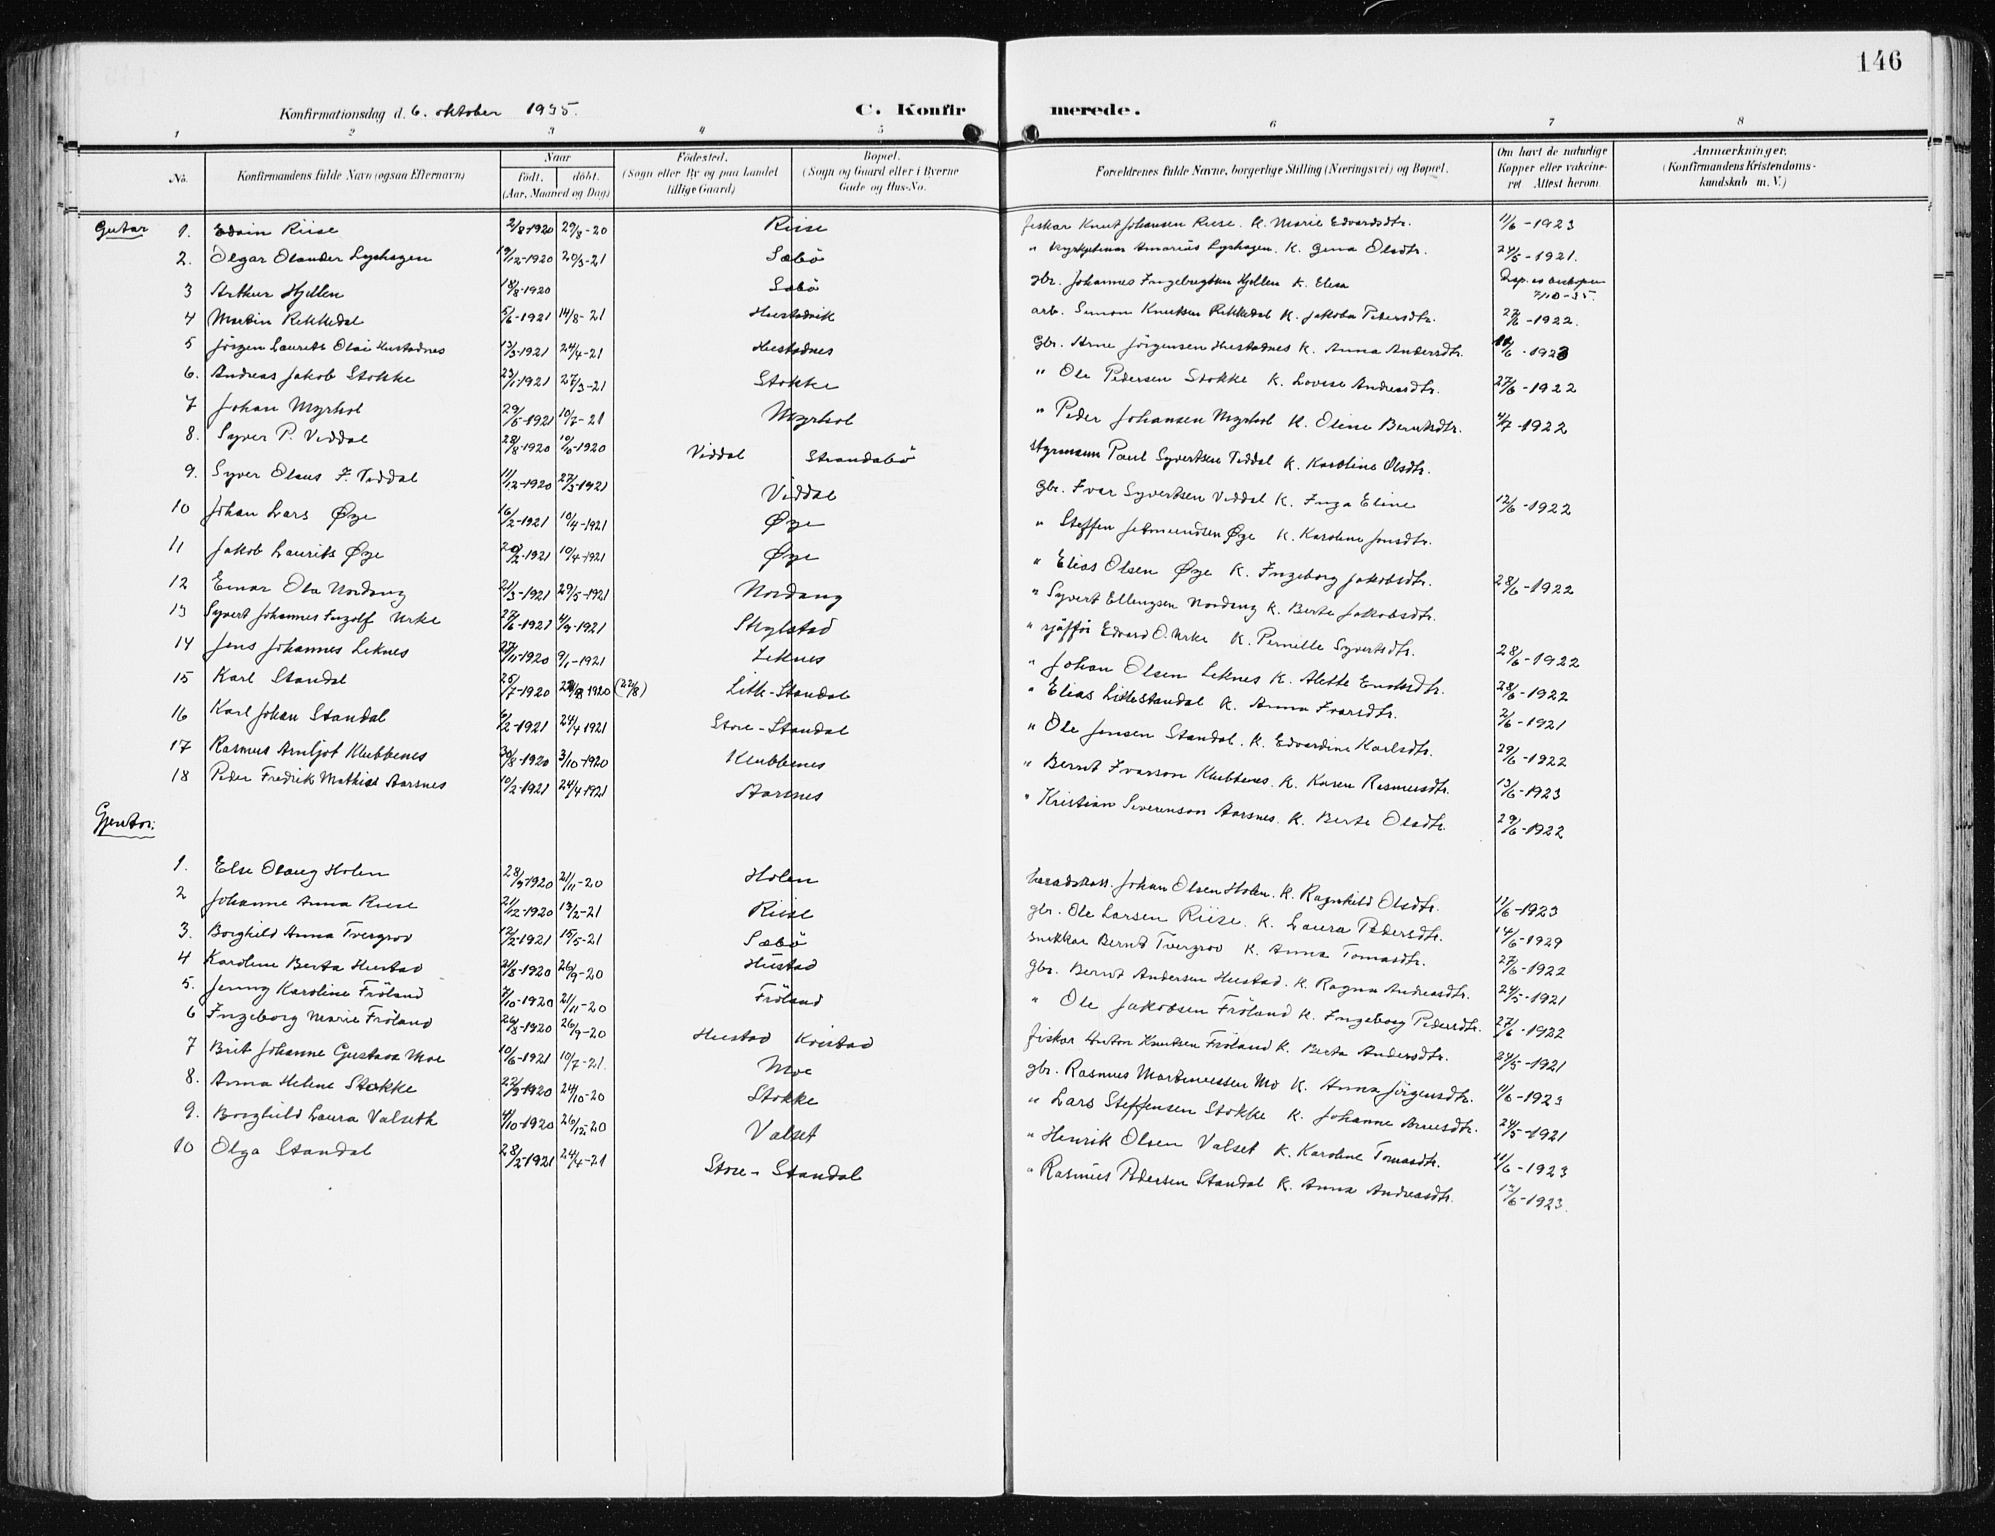 146
Konfirmationsdag d. 6. oktober 1935. C. Konfirmerede.
1 2 3 4 5 6 7 8
No. Konfirmandens fulde Navn (ogsaa Efternavn) Naar født. døbt. (Aar, Maaned og Dag) Fødested. (Sogn eller By og paa Landet tillige Gaard) Bopæl. (Sogn og Gaard eller i Byerne Gade og Hus-No. Forældrenes fulde Navne, borgerlige Stilling (Næringsvei) og Bopæl. Om havt de naturlige Kopper eller vakcineret. Attest herom. Anmærkninger. (Konfirmandens Kristendomskundskab m. V.)
Gutar 1. Edvin Riise 2/8-1920 29/8-20 Riise fiskar Knut Johansen Riise. K. Marie Edvardsdtr. 11/6-1923
2. Olgar Olander Lyshagen 19/12-1920 20/3-21 Sæbö " Amarius Lyshagen. K. Gina Olsdtr. 24/5-1921.
3 Arthur Hjellen 18/8-1920 Sæbö gbr. Johannes Ingebrigtsen Hjellen K. Elisa Disp. av biskopen 7/10-35.
4 Martin Rekkedal 5/6-1921 14/8-21 Hustadvik arb. Simon Knutsen Rekkedal K. Jakoba Pedersdtr. 27/6-1922.
5 Jörgen Laurits Olai Hustadnes 13/3-1921 24/4-21 Hustadnes gbr. Arne Jörgensen Hustadnes K. Anna Andersdtr. 11/6-1923
6. Andreas Jakob Stokke 23/1-1921 27/3-21 Stokke " Ole Pedersen Stokke K. Lovise Andreasdtr. 27/6-1922
7 Johan Myrhol 29/5-1921 10/7-21 Myrhol " Peder Johansen Myrhol K. Oline Berntsdtr. 4/7-1922
8. Syver P. Viddal 28/8-1920 10/10-1920 Viddal Strandabö styrmann Paul Syvertsen Viddal K. Karoline Olsdtr.
9. Syver Olaus I. Viddal 11/12-1920 27/3-1921 Viddal gbr. Ivar Syvertsen Viddal K. Inga Eline 12/6-1922
10 Johan Lars Øye 16/2-1921 10/4-1921 Øye " Steffen Jetmundsen Øye K. Karoline Jonsdtr.
11 Jakob Laurits Øye 20/2-1921 10/4-1921 Øye " Elias Olsen Øye K. Ingeborg Jakobsdtr. 28/6-1922
12 Einar Ola Nordang 21/3-1921 29/5-1921 Nordang " Syvert Ellingsen Nordang K. Berte Jakobsdtr.
13 Syvert Johannes Ingolf Urke 27/6-1921 4/9-1921 Skylstad " sjåfför Edvard O. Urke K. Pernille Syvertsdtr. 28/6-1922
14 Jens Johannes Leknes 27/11-1920 9/1-1921 Leknes " Johan Olsen Leknes K. Alette Enoksdtr. 28/6-1922
15 Karl Standal 25/7-1920 22/8-1920 (22/8) Litle-Standal " Elias Litlestandal K. Anna Ivarsdtr. 2/6-1921
16 Karl Johan Standal 6/2-1921 24/4-1921 Store-Standal " Ole Jensen Standal. K. Edvardine Karlsdtr. 29/6-1922
17 Rasmus Arnljot Klubbenes 30/8-1920 3/10-1920 Klubbenes " Bernt Ivarson Klubbenes. K. Karen Rasmusdtr. 13/6-1923
18 Peder Fredrik Mathias Aarsnes 10/2-1921 24/4-1921 Aarsnes " Kristian Severinson Aarsnes. K. Berte Olsdtr. 29/6-1922
Gjentor:
1. Else Olaug Holen 28/9-1920 21/11-20 Holen heradskass. Johan Olsen Holen. K. Ragnhild Olsdtr. 11/6-1923
2 Johanne Anna Riise 21/12-1920 13/2-21 Riise gbr. Ole Larsen Riise. K. Laura Pedersdtr. 14/6-1929
3. Borghild Anna Tvergrov 12/2-1921 15/5-21 Sæbö snikkar Bernt Tvergrov K. Anna Tomasdtr. 27/6-1922
4 Karoline Berta Hustad 21/8-1920 26/9-20 Hustad gbr. Bernt Andersen Hustad. K. Ragna Andreasdtr. 24/5-1921
5. Jenny Karoline Fröland 7/10-1920 21/11-20 Fröland " Ole Jakobsen Fröland K. Ingeborg Pedersdtr. 27/6-1922
6 Ingeborg Marie Fröland 26/8-1920 26/9-20 Hustad fiskar Anton Knutsen Fröland K. Berta Andersdtr. 24/5-1921
7 Brit Johanne Gustava Moe 10/6-1921 10/7-21. Moe gbr. Rasmus Martinussen Mo K. Anna Jörgensdtr. 11/6-1923
8. Anna Helene Stokke 22/9-1920 24/10-20 Stokke " Lars Steffensen Stokke K. Johanne Arnesdtr. 24/5-1921
9. Borghild Laura Valseth 4/10-1920 26/12-20 Valset " Henrik Olsen Valset K. Karoline Tomasdtr. 11/6-1923
10 Olga Standal 28/2-1921 24/4-21 Store-Standal " Rasmus Pedersen Standal K. Anna Andreasdtr. 13/6-1923.